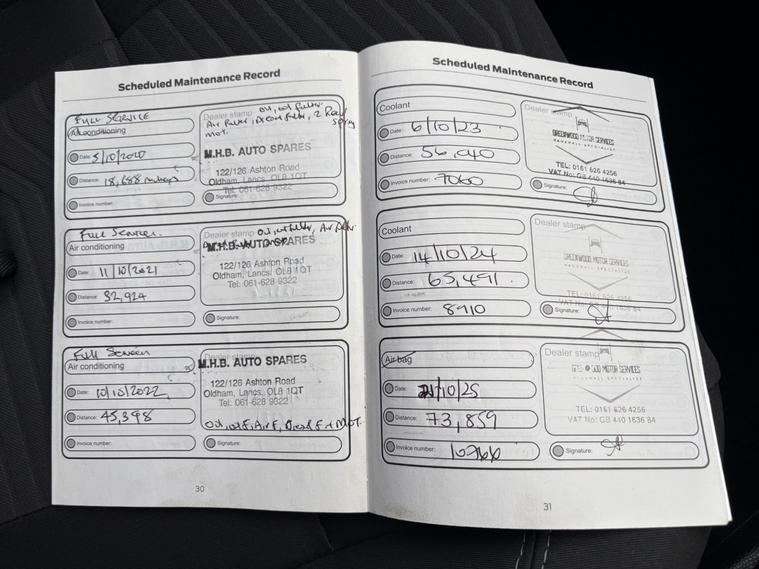 Scheduled Maintenance Record
FULL SERVICE
Air conditioning
Date: 5/10/2020
Distance: 18,688
Invoice number:
Dealer stamp oil, oil filter,
Air filter, 2 Rear
Spring
MOT.
M.H.B. AUTO SPARES
122/126 Ashton Road
Oldham, Lancs, OL8 1QT
Tel: 061-628 9322
Signature:
Full Service.
Air conditioning
Date: 11/10/2021
Distance: 32,924
Invoice number:
Dealer stamp Oil, oil filter, Air filter
M.H.B. AUTO SPARES
122/126 Ashton Road
Oldham, Lancs, OL8 1QT
Tel: 061-628 9322
Signature:
Full Service
Air conditioning
Date: 10/10/2022
Distance: 45,398
Invoice number:
Dealer stamp
M.H.B. AUTO SPARES
122/126 Ashton Road
Oldham, Lancs, OL8 1QT
Tel: 061-628 9322
Oil, oil F, Air F, MOT.
Signature:
30
Scheduled Maintenance Record
Coolant
Date: 6/10/23
Distance: 56,040
Invoice number: 7060
Dealer stamp
GREENWOOD MOTOR SERVICES
VAUXHALL SPECIALIST
TEL: 0161 626 4256
VAT No: GB 440 1636 84
Signature:
Coolant
Date: 14/10/24
Distance: 65,491
Invoice number: 8910
Dealer stamp
GREENWOOD MOTOR SERVICES
VAUXHALL SPECIALIST
TEL: 0161 626 4256
VAT No: GB 440 1636 84
Signature:
Air bag
Date: /10/25
Distance: 73,859
Invoice number:
Dealer stamp
MOTOR SERVICES
VAUXHALL SPECIALIST
TEL: 0161 626 4256
VAT No: GB 440 1636 84
Signature:
31